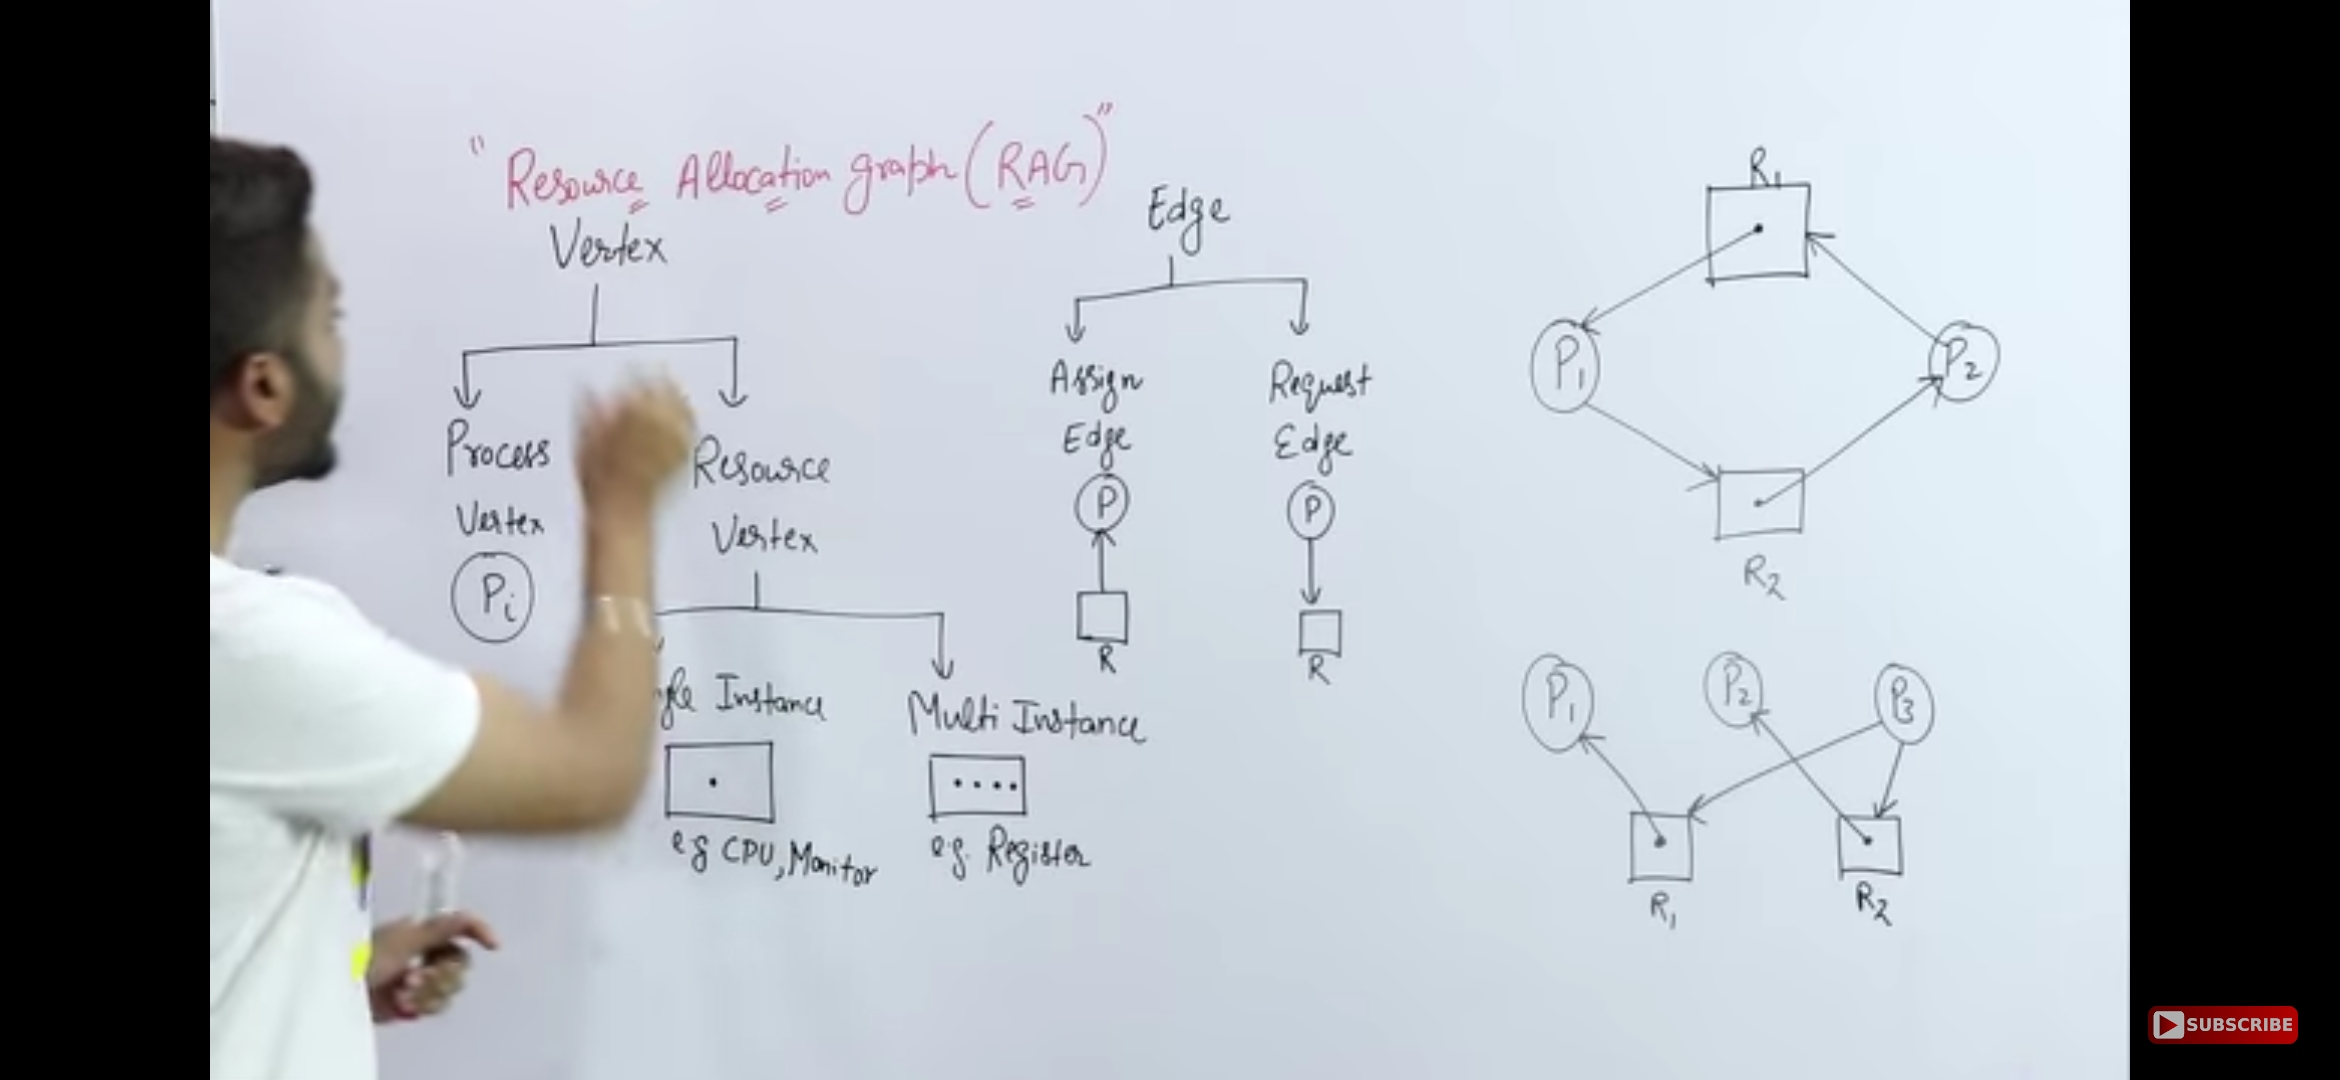 "Resource Allocation graph (RAG)"
Vertex
Process
Vertex
Pi
Resource
Vertex
Instance
e.g CPU, Monitor
Multi Instance
e.g. Register
Edge
Assign
Edge
P
R
Request
Edge
P
R
R1
P1
P2
R2
P1
P2
P3
R1
R2
SUBSCRIBE